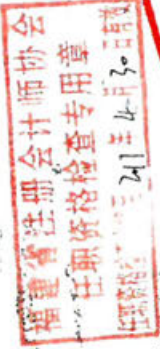 福建省注册会计师协会
任职资格检查专用章
2011年4月30日